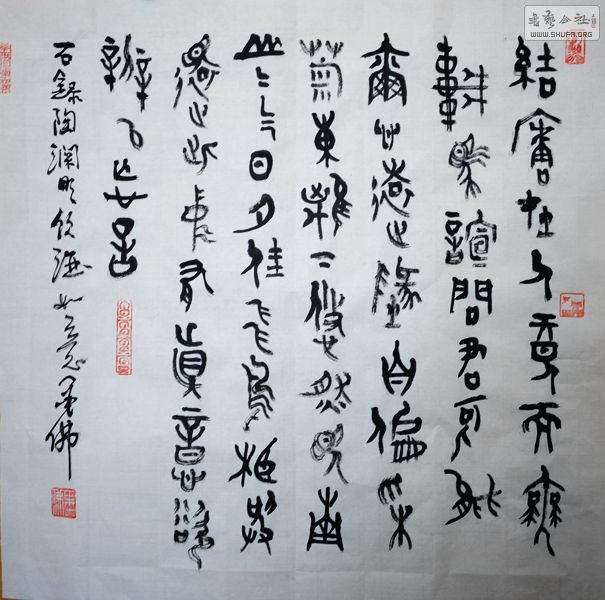 書艺公社
WWW.SHUFA.ORG
結廬在人竟而無
車馬諠問君可能
爾心遠地自偏采
菊東籬下悠然見南
山〻气日夕佳飛鳥相與
還此中有真意欲
辯已忘言
右錄陶淵明飲酒 墨佛